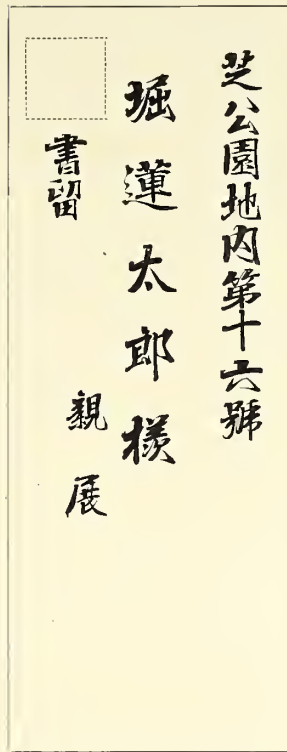 芝公園地内第十六號
堀蓮太郎様
書留
親展